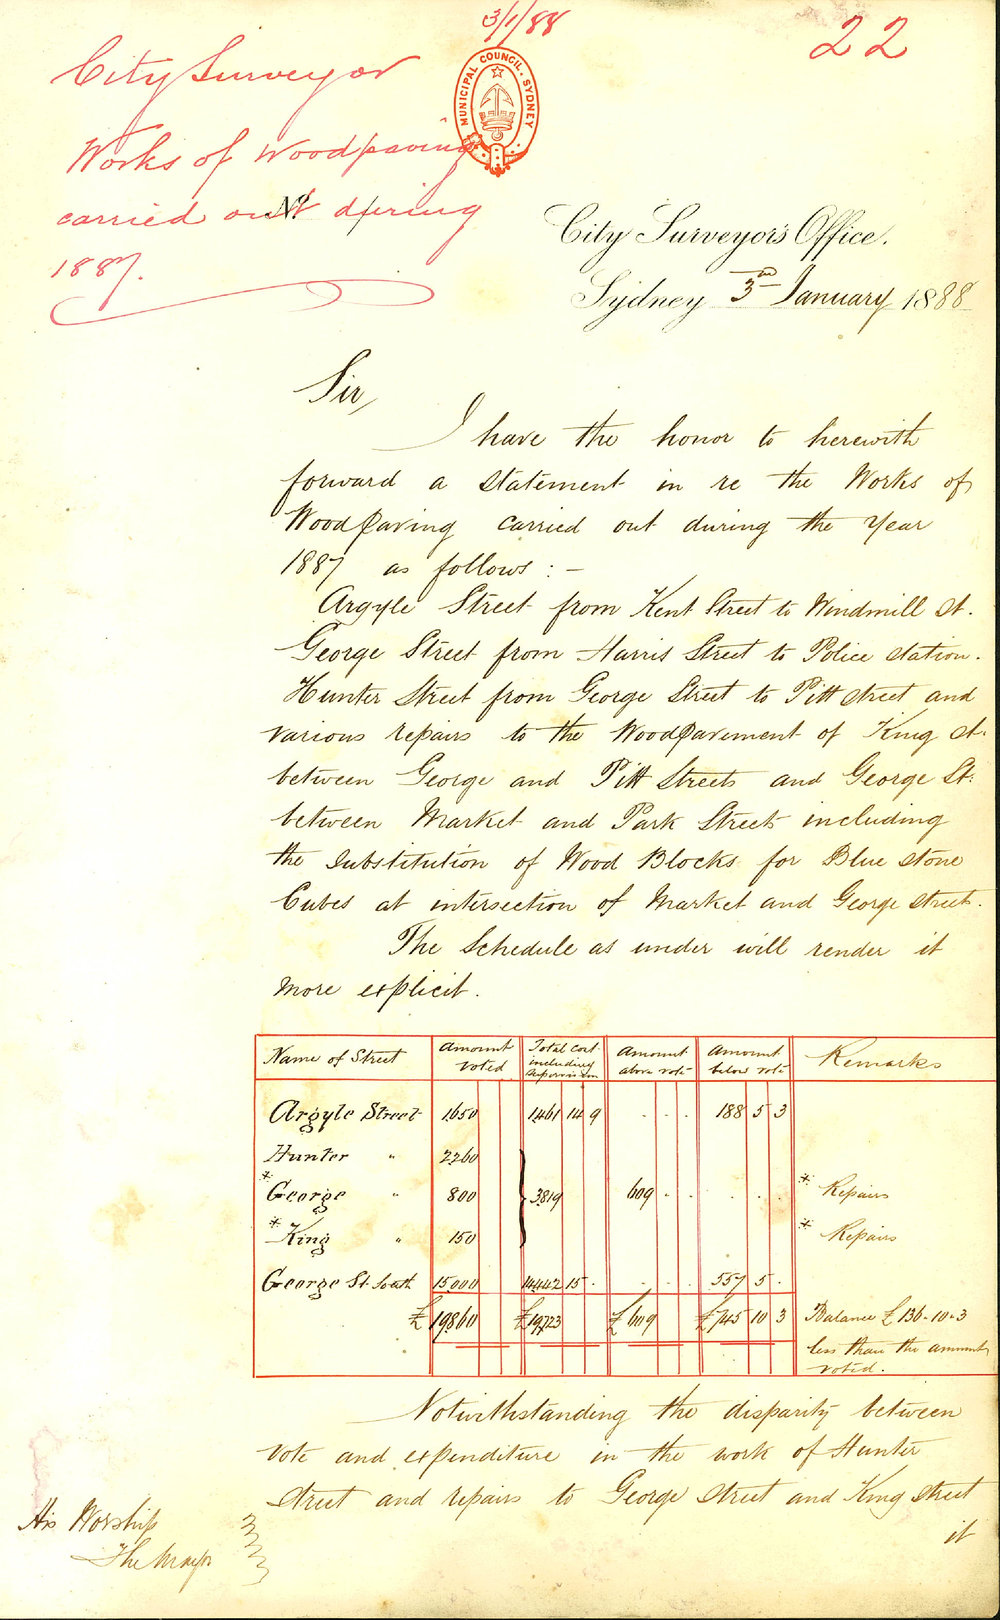 3/1/88
22
City Surveyor
MUNICIPAL COUNCIL. SYDNEY
Works of Woodpaving
carried out during
1887.
No.
City Surveyor's Office.
Sydney 3rd January 1888
Sir,
I have the honor to herewith
forward a statement in re the Works of
Wood Paving carried out during the Year
1887 as follows : -
Argyle Street from Kent Street to Windmill St.
George Street from Harris Street to Police Station.
Hunter Street from George Street to Pitt Street and
various repairs to the Wood Pavement of King St.
between George and Pitt Streets and George St.
between Market and Park Streets including
the Substitution of Wood Blocks for Blue Stone
Cubes at intersection of Market and George Street.
The Schedule as under will render it
more explicit.
Name of Street | Amount voted | Total cost including supervision | Amount above vote | Amount below vote | Remarks
Argyle Street 1650 1461 14 9 . . . 188 5 3
Hunter " 2260
* George " 800 } 3819 609 . . . . . * Repairs
* King " 150 * Repairs
George St. South 15,000 14442 15 . . . . 557 5 .
£ 19860 £19723 £ 609 £745 10 3 Balance £ 136-10-3
less than the amount
voted.
Notwithstanding the disparity between
vote and expenditure in the work of Hunter
Street and repairs to George Street and King Street
it
His Worship
The Mayor